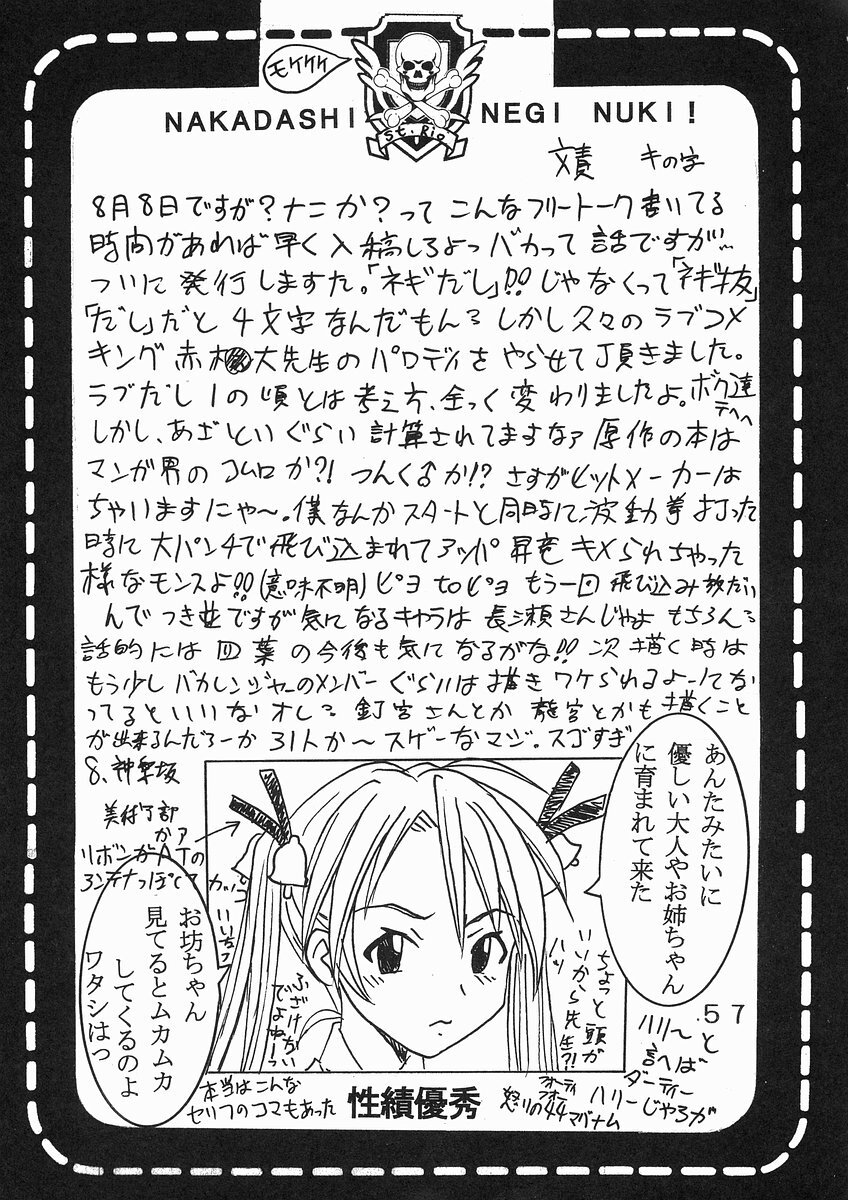 モケケケ
NAKADASHI NEGI NUKI!
St. Rio
文責 キの字
8月8日ですが?ナニか?って こんなフリートーク書いてる
時間があれば早く入稿しろよっバカって話ですが…
ついに発行しますた。「ネギだし」!!じゃなくって「ネギ抜」
「だし」だと4文字なんだもん しかし久々のラブコメ
キング赤松大先生のパロディをやらせて頂きました。
ラブだし1の頃とは考え方、全っく変わりましたよ。ボク達
テヘヘ
しかし、あざといぐらい計算されてますなァ原作の本は
マンガ界のコムロか?!つんく♂か!?さすがヒットメーカーは
ちゃいますにゃ〜。僕なんかスタートと同時に波動拳打った
時に大パンチで飛び込まれてアッパ昇竜キメられちゃった
様なモンスよ!!(意味不明)ピヨtoピヨもう一回飛び込み放だい
んでつき並ですが気になるキャラは長瀬さんじゃよもちろん
話的には四葉の今後も気になるがな!!次描く時は
もう少しバカレンジャーのメンバーぐらいは描きワケられるよーってな
ってるといいなオレ 釘宮さんとか龍宮とかも描くこと
が出来るんだろーか31人か〜スゲーなマジ。スゴすぎ
8、神楽坂
美術部
かァ
リボンがATの
アンテナっぽくて
カッコ
いいっ
あんたみたいに
優しい大人やお姉ちゃん
に育まれて来た
お坊ちゃん
見てるとムカムカ
してくるのよ
ワタシはっ
ちょっと頭が
いいから先生?!
ハッ
ふざけない
でよねーっ
57
ハリーと
言へば
ダーティー
ハリーじゃろが
本当はこんな
セリフのコマもあった
性績優秀
フォーティ
フォー
怒りの44マグナム